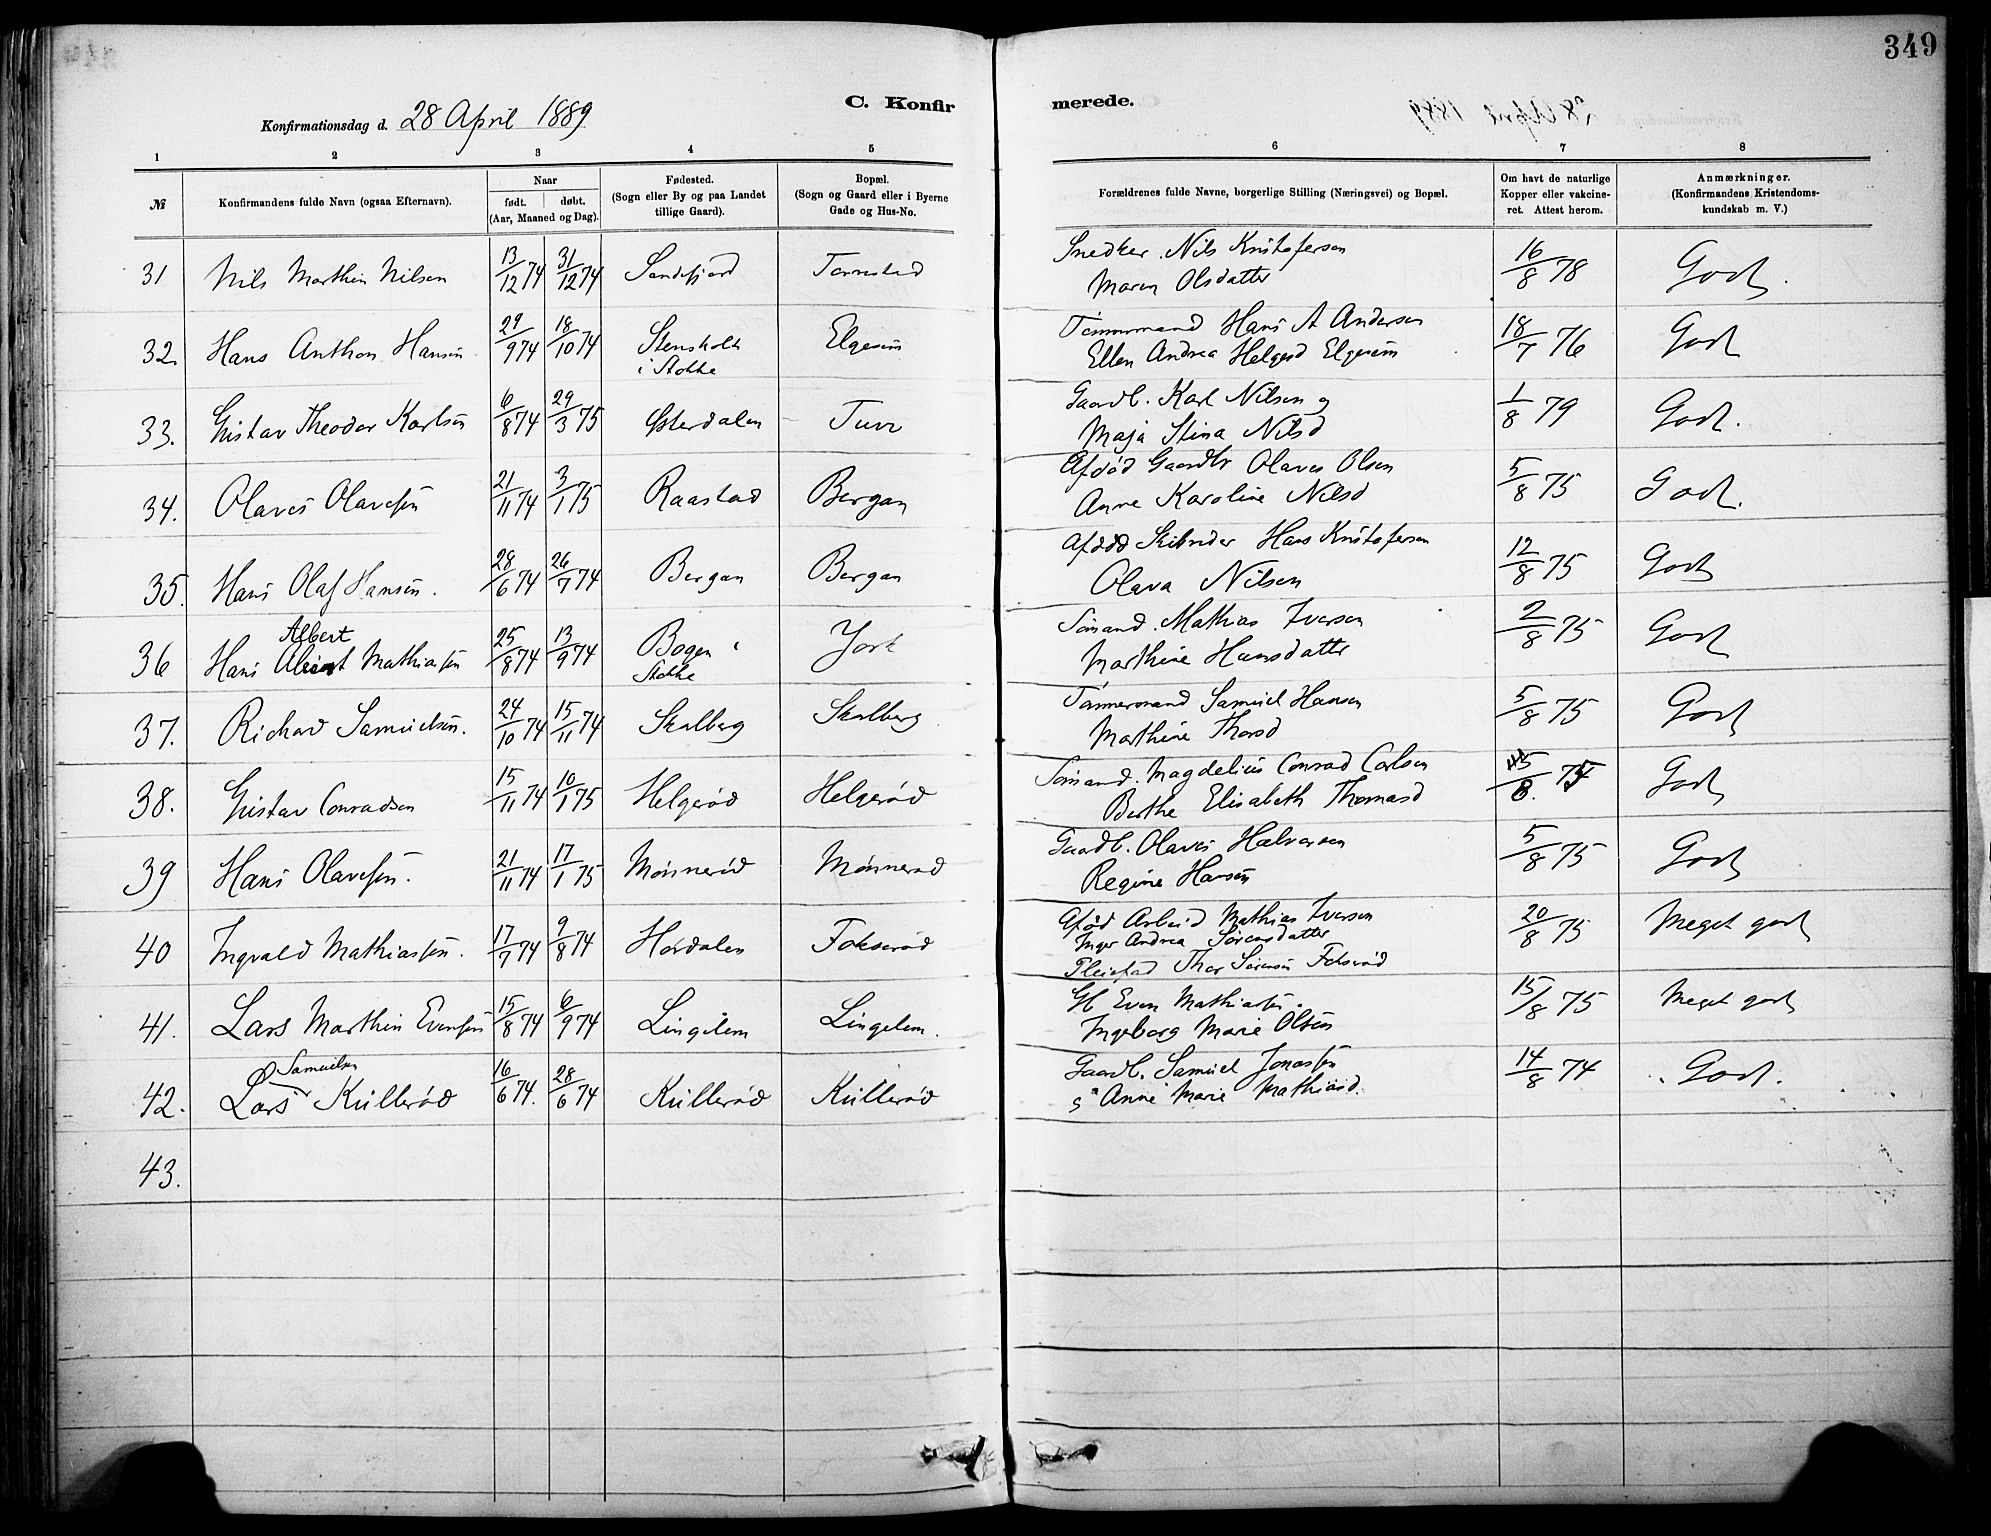 349
C. Konfirmerede.
Konfirmationsdag d. 28 April 1889
1 2 3 4 5 6 7 8
№ Konfirmandens fulde Navn (ogsaa Efternavn). Naar født. døbt. (Aar, Maaned og Dag). Fødested. (Sogn eller By og paa Landet tillige Gaard). Bopæl. (Sogn og Gaard eller i Byerne Gade og Hus-No. Forældrenes fulde Navne, borgerlige Stilling (Næringsvei) og Bopæl. Om havt de naturlige Kopper eller vakcineret. Attest herom. Anmærkninger. (Konfirmandens Kristendomskundskab m. V.)
31 Nils Marthin Nilsen 13/12 74 31/12 74 Sandefjord Tornstad Snedker. Nils Kristofersen 16/8 78 Godt.
Maren Olsdatter
32. Hans Anthon Hansen 29/9 74 18/10 74 Stensholt i Stokke Elgesem Tømmermand Hans A Andersen 18/7 76 Godt
Ellen Andrea Helgesd Elgesem
33. Gustav Theodor Karlsen 6/8 74 29/3 75 Østerdalen Tuve Gaardb. Karl Nilsen og 1/8 79 Godt.
Maja Stina Nilsd
34. Olaves Olavesen 21/11 74 3/1 75 Raastad Bergan Afdød Gaardbr Olaves Olsen 5/8 75 Godt.
Anne Karoline Nilsd
35. Hans Olaf Hansen. 28/6 74 26/7 74 Bergan Bergan Afdød Skibsrider Hans Kristofersen 12/8 75 Godt
Olava Nilsen
Albert
36 Hans Mathiasen 25/8 74 13/9 74 Bogen i Stokke York Sømand. Mathias Iversen 2/8 75 Godt
Marthine Hansdatter
37. Richard Samuelsen. 24/10 74 15/11 74 Skalberg Skalberg Tømmermand Samuel Hansen 5/8 75 Godt
Marthine Thorsd
38. Gustav Conradsen 15/11 74 10/1 75 Helgerød Helgerød Sømand. Magdelius Conrad Carlsen 5/8. 75 Godt
Berthe Elisabeth Thomasd
39 Hans Olavesen. 21/11 74 17/1 75 Mønnerød Mønnerød Gaardb. Olaves Halvorsen 5/8 75 Godt
Regine Hansen
40 Ingvald Mathiassen. 17/7 74 9/8 74 Hovdalen Fokserød Afdød Arbeid Mathias Iversen 20/8 75 Meget godt
Inger Andrea Sørensdatter
Pleiefad Thor Sørensen Fokserød
41. Lars Marthin Evensen 15/8 74 6/9 74 Lingelem Lingelem. Gb Even Mathiassen. 15/8 75 Meget godt
Ingeborg Marie Olsen
Samuelsen
42. Lars Kullerød 16/6 74. 28/6 74 Kullerød Kullerød Gaardb. Samuel Jonassen 14/8 74 Godt.
Anne Marie Mathiasd.
43.